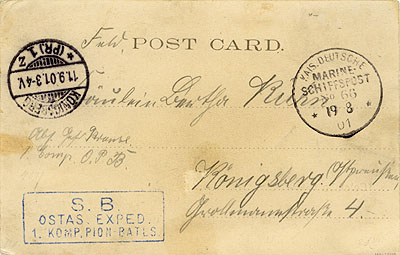 Feld POST CARD.
KÖNIGSBERG
(PR.) 1 Z
11.9.01.3-4V.
KAIS. DEUTSCHE
MARINE-
SCHIFFSPOST
No 66
19 8
01
Fräulein Bertha
1. Komp. O. P. B
Königsberg Ostpreußen
Großmannstraße 4
S. B.
OSTAS. EXPED.
1. KOMP. PION-BATLS.